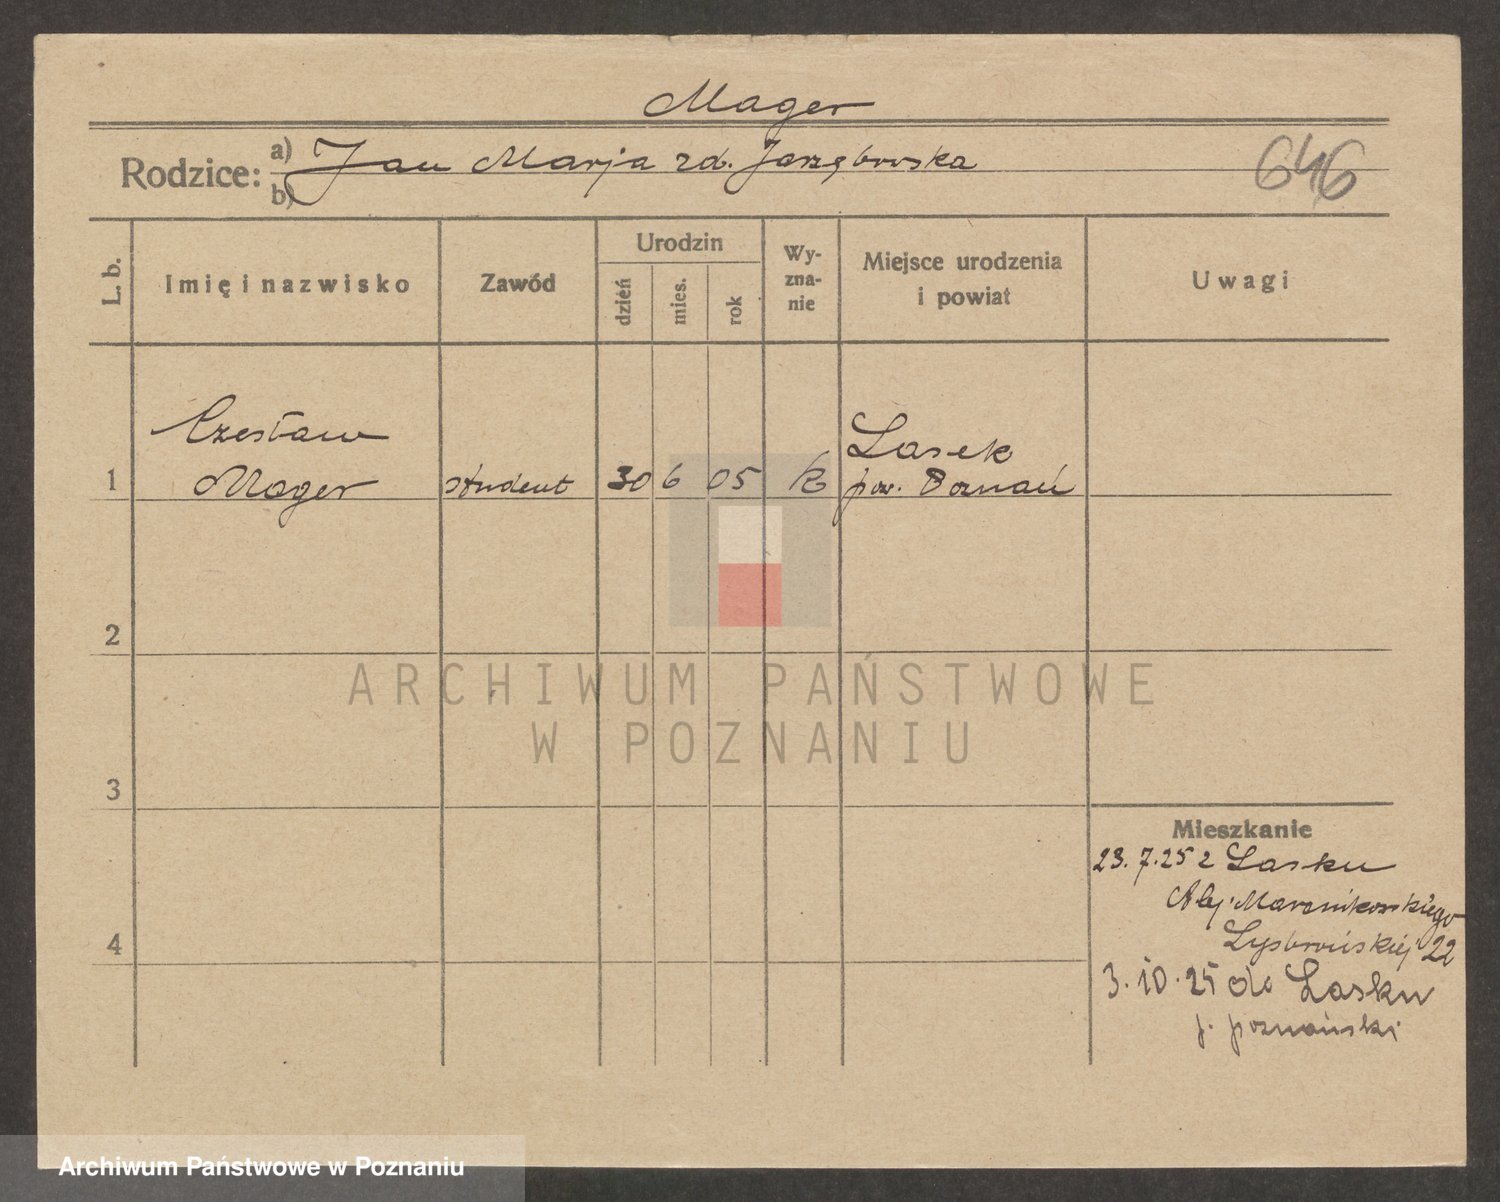 Mager
646
Rodzice: a) Jan Marja zd. Jarzębowska
b)
L. b.
Imię i nazwisko
Zawód
Urodzin
dzień
mies.
rok
Wy-
zna-
nie
Miejsce urodzenia
i powiat
Uwagi
1
Czesław
Mager
student
30
6
05
k
Lasek
pow. Poznań
2
3
4
Mieszkanie
23.7.25 z Lasku
Alej. Marcinkowskiego
22
3.10.25 do Lasku
p. poznański
ARCHIWUM PAŃSTWOWE
W POZNANIU
Archiwum Państwowe w Poznaniu